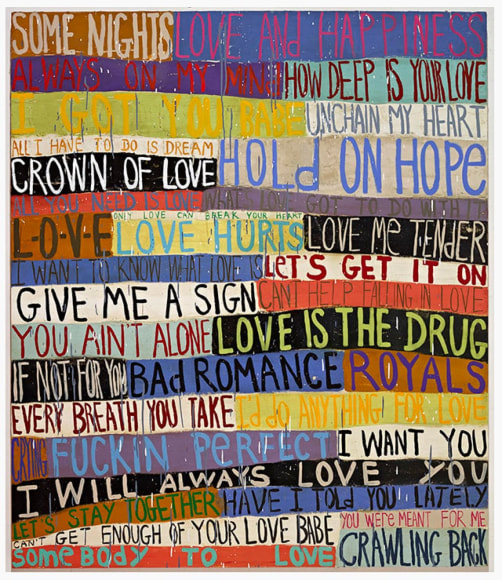 SOME NIGHTS LOVE AND HAPPINESS
ALWAYS ON MY MIND HOW DEEP IS YOUR LOVE
I GOT YOU BABE UNCHAIN MY HEART
ALL I HAVE TO DO IS DREAM
CROWN OF LOVE HOLD ON HOPE
ALL YOU NEED IS LOVE WHAT'S LOVE GOT TO DO WITH IT
L-O-V-E ONLY LOVE CAN BREAK YOUR HEART
LOVE HURTS LOVE ME TENDER
I WANT TO KNOW WHAT LOVE IS LET'S GET IT ON
GIVE ME A SIGN CAN'T HELP FALLING IN LOVE
YOU AIN'T ALONE LOVE IS THE DRUG
IF NOT FOR YOU BAd ROMANCE ROYALS
EVERY BREATH YOU TAKE I'd dO ANYTHING FOR LOVE
CRYING FUCKIN PERFECT I WANT YOU
I WILL ALWAYS LOVE YOU
LET'S STAY TOGETHER HAVE I TOLd YOU LATELY
CAN'T GET ENOUGH OF YOUR LOVE BABE YOU WERE MEANT FOR ME
SOMEBODY TO LOVE CRAWLING BACK